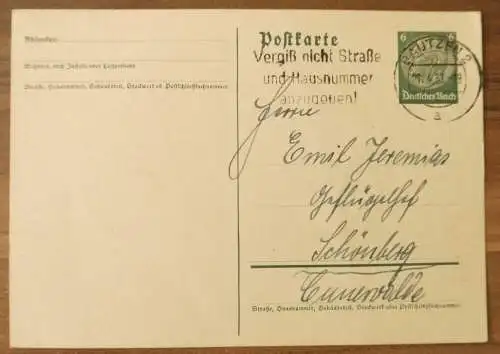 Absender:
Wohnort, auch Zustell- oder Leitpostamt
Straße, Hausnummer, Gebäudeteil, Stockwerk od. Postschließfachnummer
Postkarte
Vergiß nicht Straße
und Hausnummer
anzugeben!
6 6
Deutsches Reich
BAUTZEN 2
a
Herrn
Emil Jeremias
Geflügelhof
Schönberg
Cunewalde
Straße, Hausnummer, Gebäudeteil, Stockwerk oder Postschließfachnummer